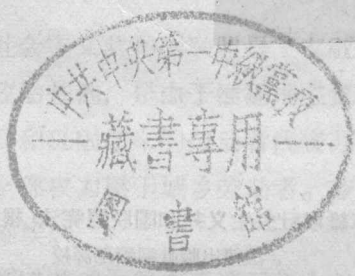 中共中央第一中級黨校
藏書專用
圖書館